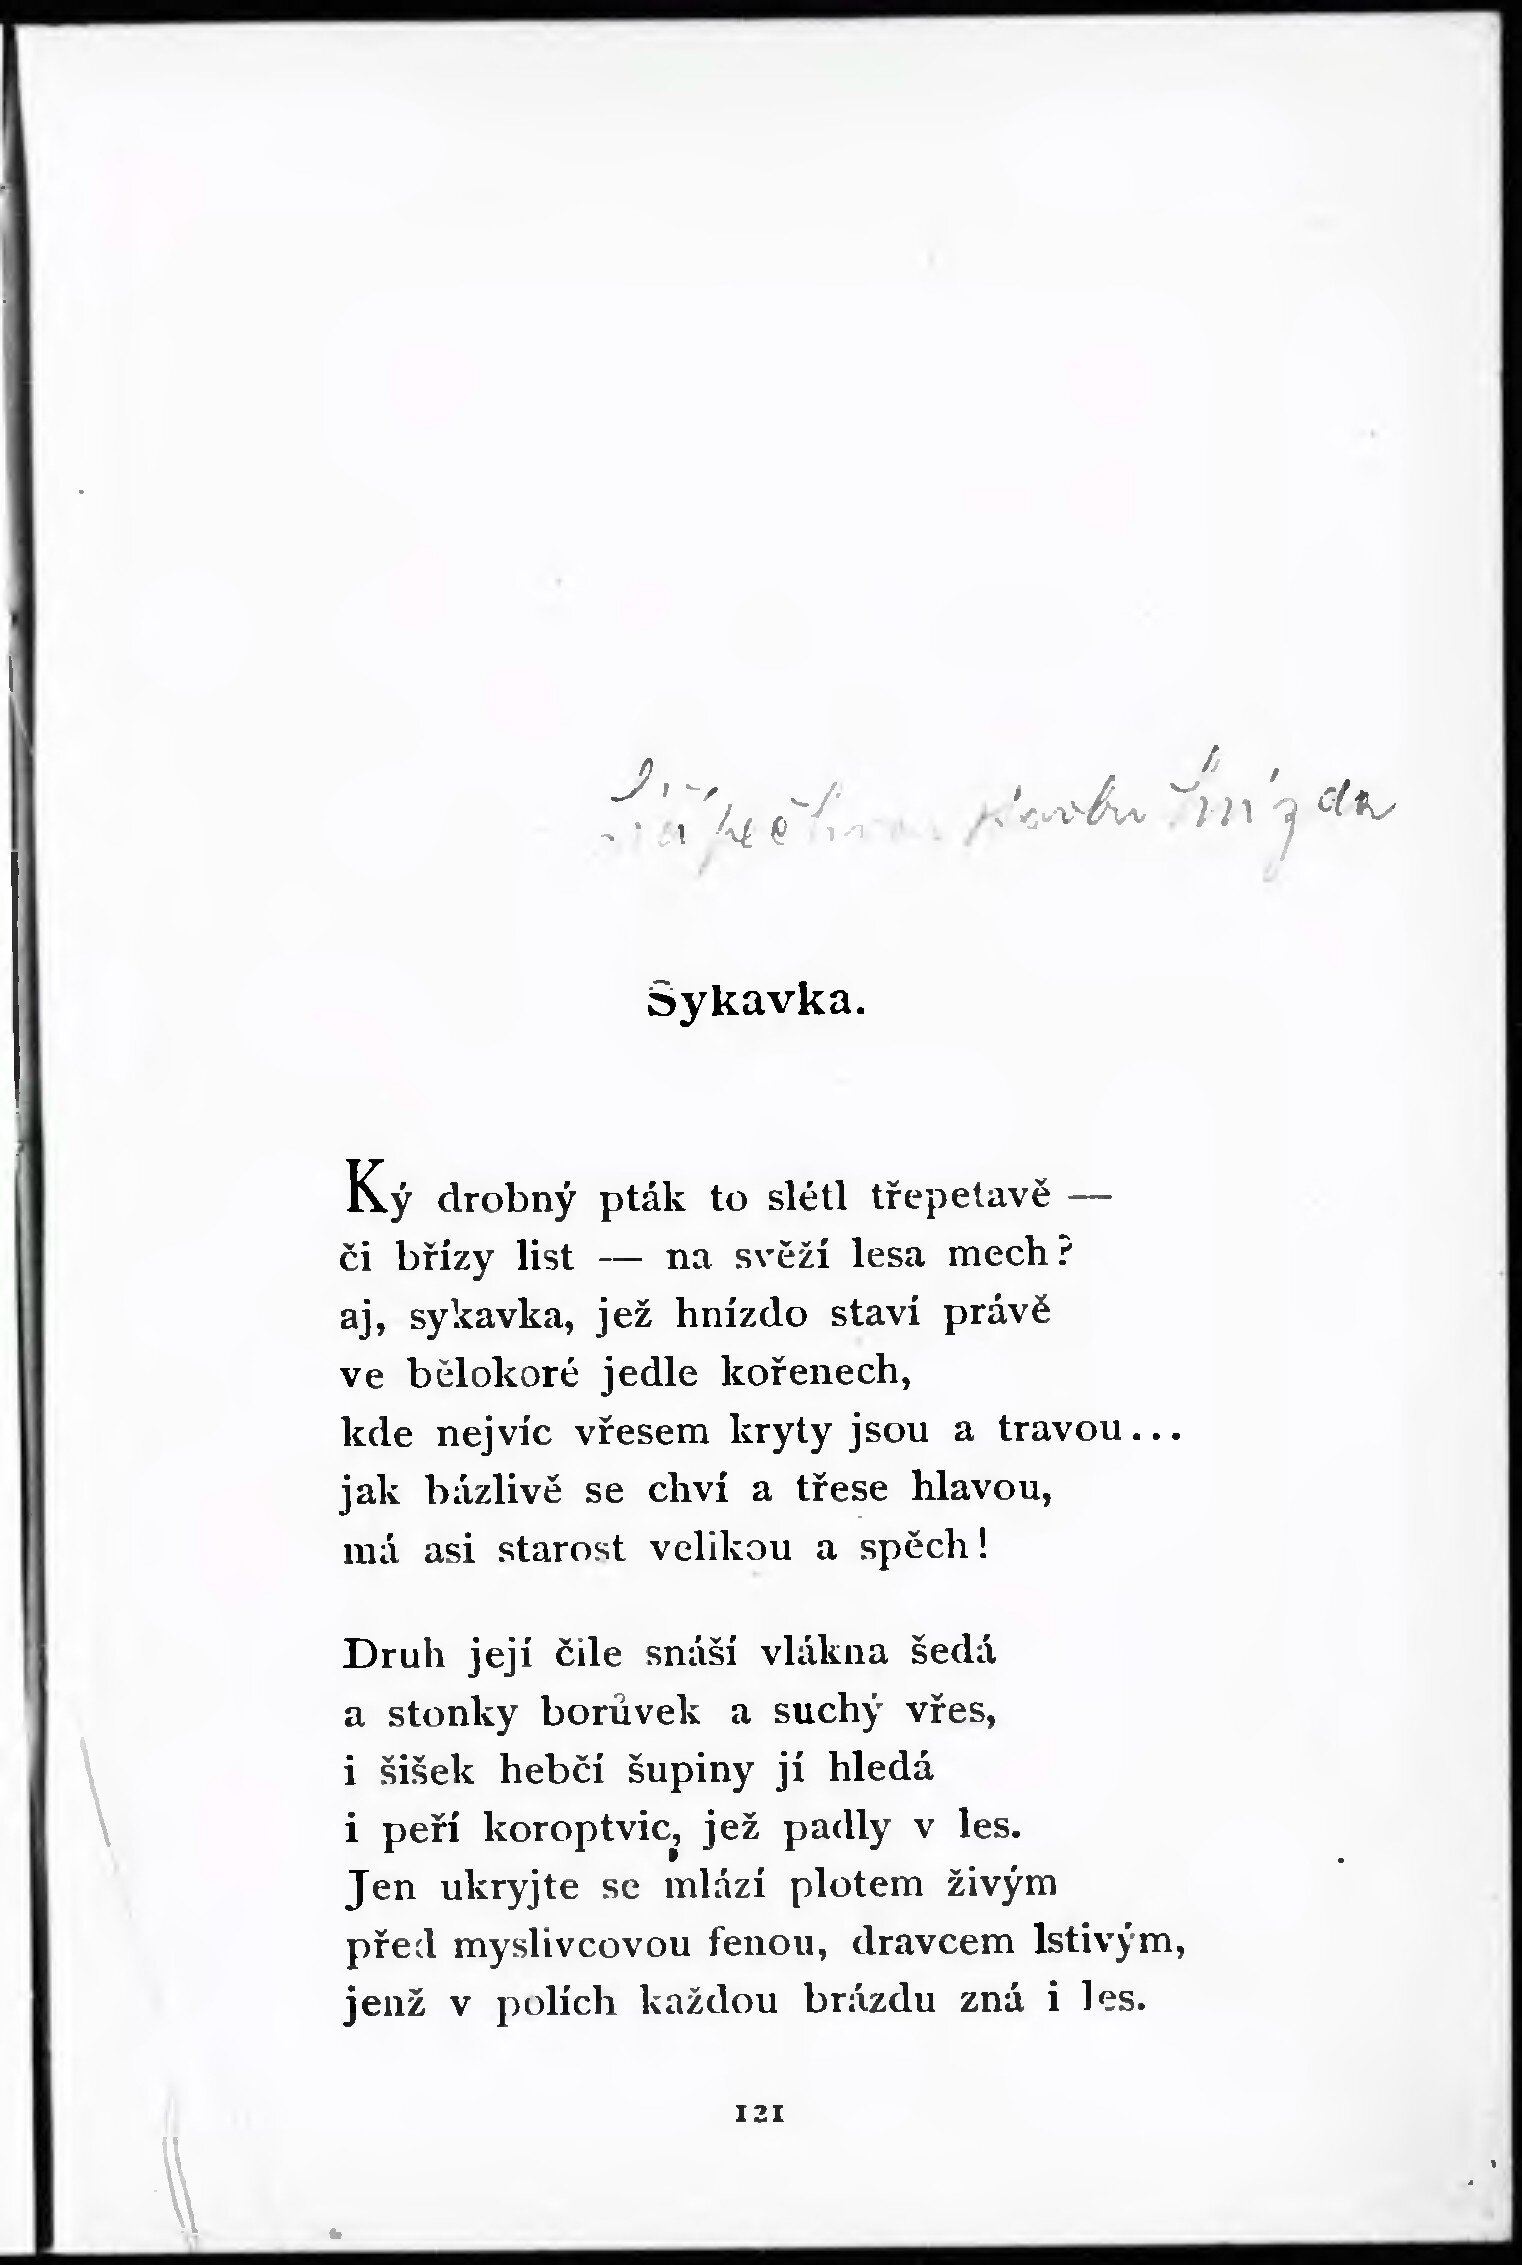 Sykavka.
Ký drobný pták to slétl třepetavě —
či břízy list — na svěží lesa mech?
aj, sykavka, jež hnízdo staví právě
ve bělokoré jedle kořenech,
kde nejvíc vřesem kryty jsou a travou...
jak bázlivě se chví a třese hlavou,
má asi starost velikou a spěch!
Druh její čile snáší vlákna šedá
a stonky borůvek a suchý vřes,
i šišek hebčí šupiny jí hledá
i peří koroptvic, jež padly v les.
Jen ukryjte se mlází plotem živým
před myslivcovou fenou, dravcem lstivým,
jenž v polích každou brázdu zná i les.
121